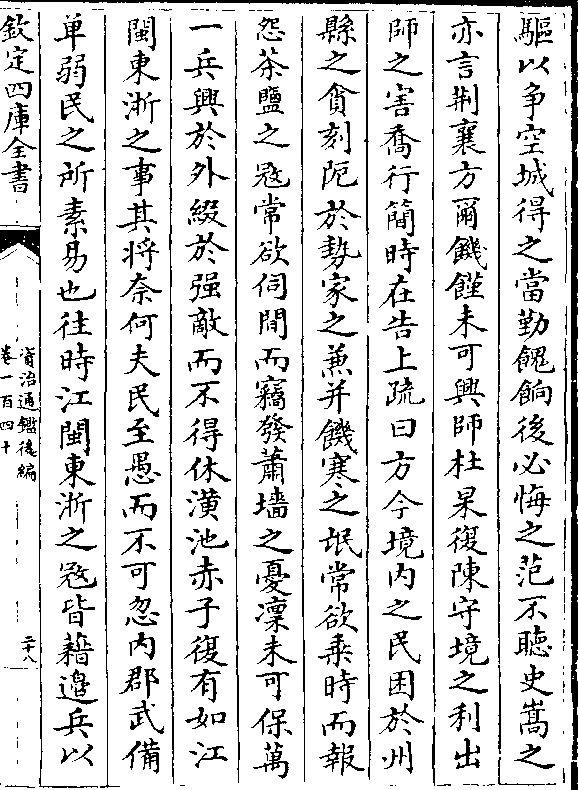 驅以争空城得之當勤餽餉後必悔之范不聽史嵩之
亦言荆襄方爾饑饉未可興師杜杲復陳守境之利出
師之害喬行簡時在告上疏曰方今境内之民困於州
縣之貪刻阨於勢家之兼并饑寒之氓常欲乗時而報
怨茶鹽之冦常欲伺間而竊發蕭墻之憂凜未可保萬
一兵興於外綴於强敵而不得休潢池赤子復有如江
閩東浙之事其将奈何夫民至愚而不可忽内郡武備
单弱民之所素易也往時江閩東浙之冦皆藉邉兵以
欽定四庫全書
資治通鑑後編
卷一百四十
二十八